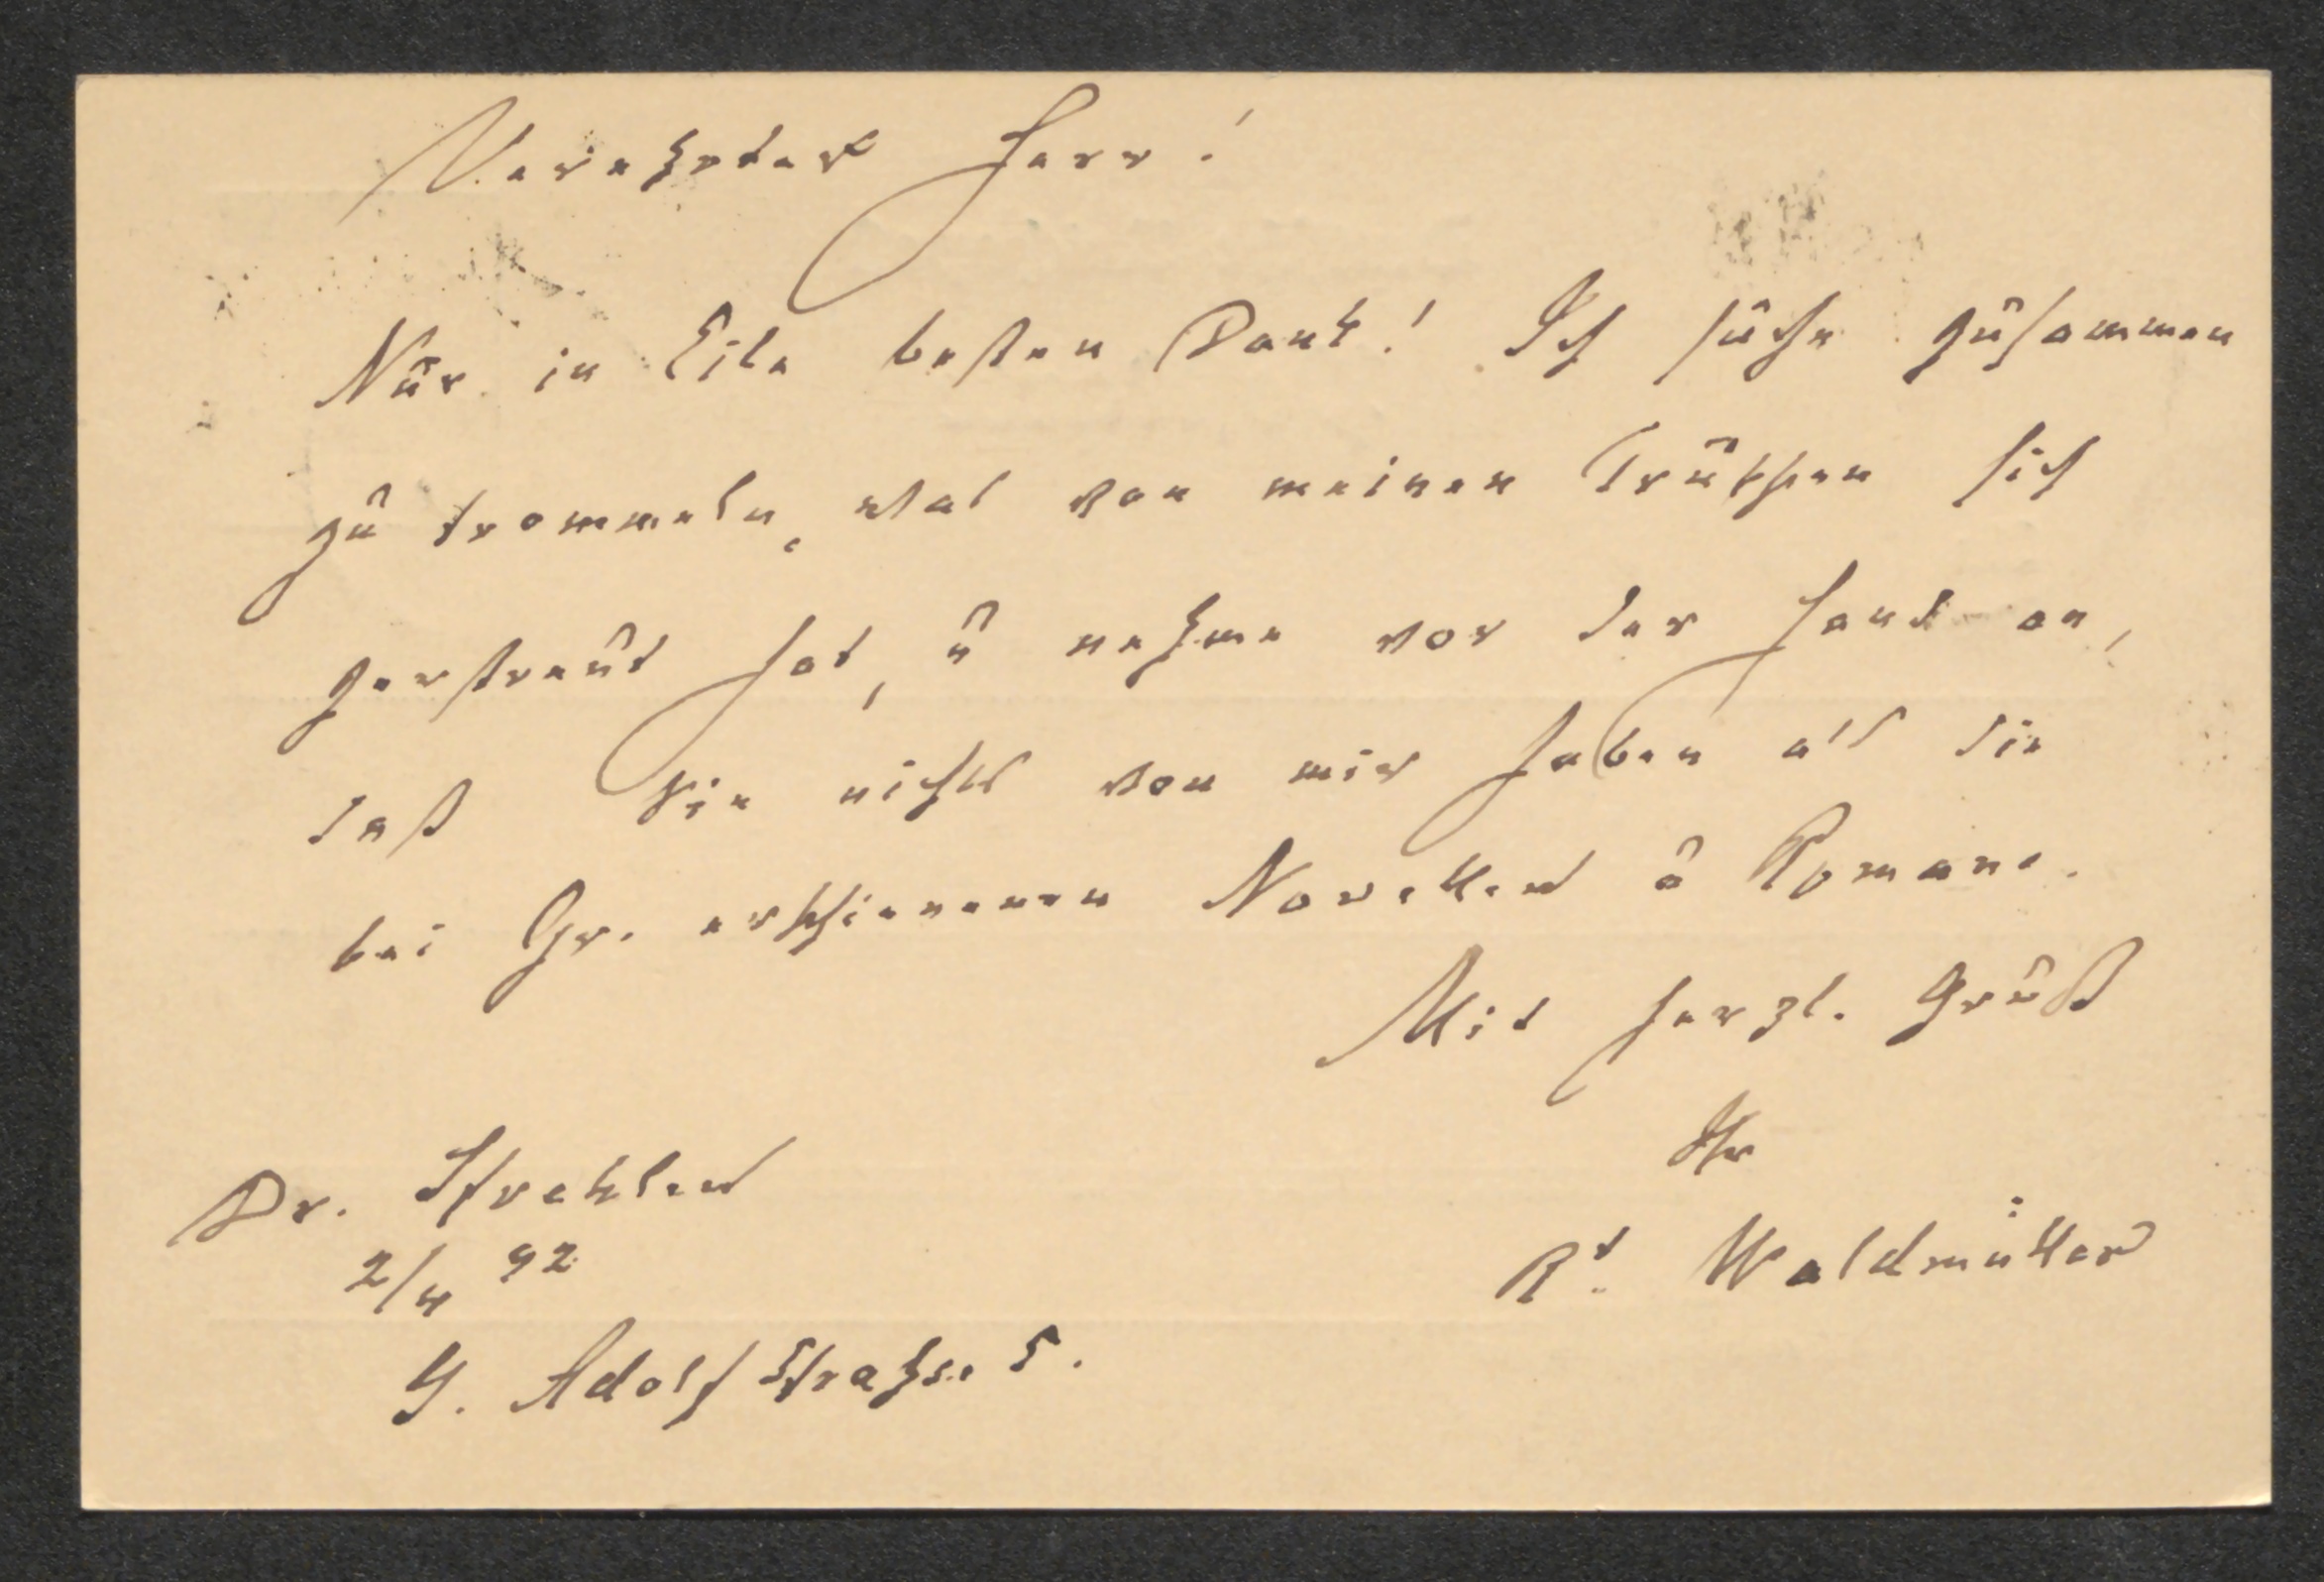 Verehrter Herr!
Nur in Eile besten Dank! Ich suche zusammen
zu trommeln, was von meinen Truppen sich
zerstreut hat, u nehme vor der Hand an,
daß Sie nichts von mir haben als die
bei Gr. erschienenen Novellen u Romane.
Mit herzl. Gruß
Ihr
Rt. Waldmüller
Dr. Strehlen
2/4 92
G. Adolf Strahse 5.